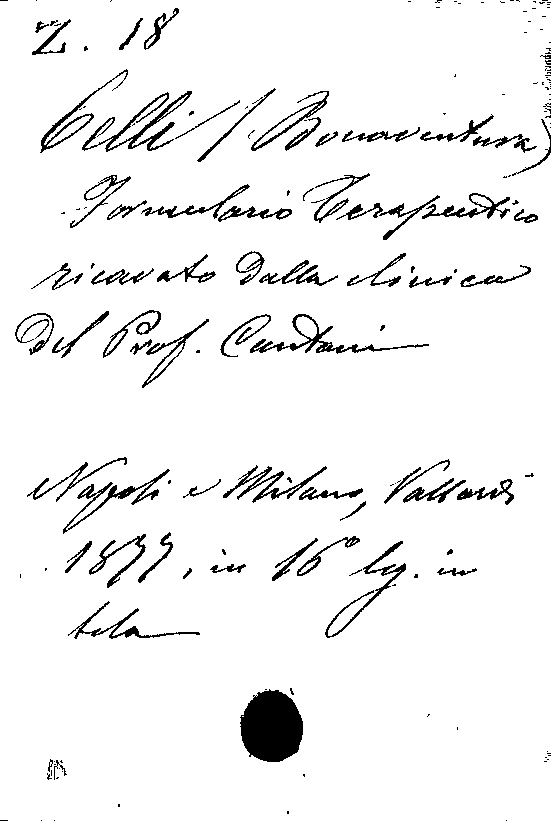 Z. 18
Celli (Bonaventura)
Formulario Terapeutico
ricavato dalla clinica
del Prof. Cantani
Napoli e Milano, Vallardi
1877, in 16° leg. in
tela